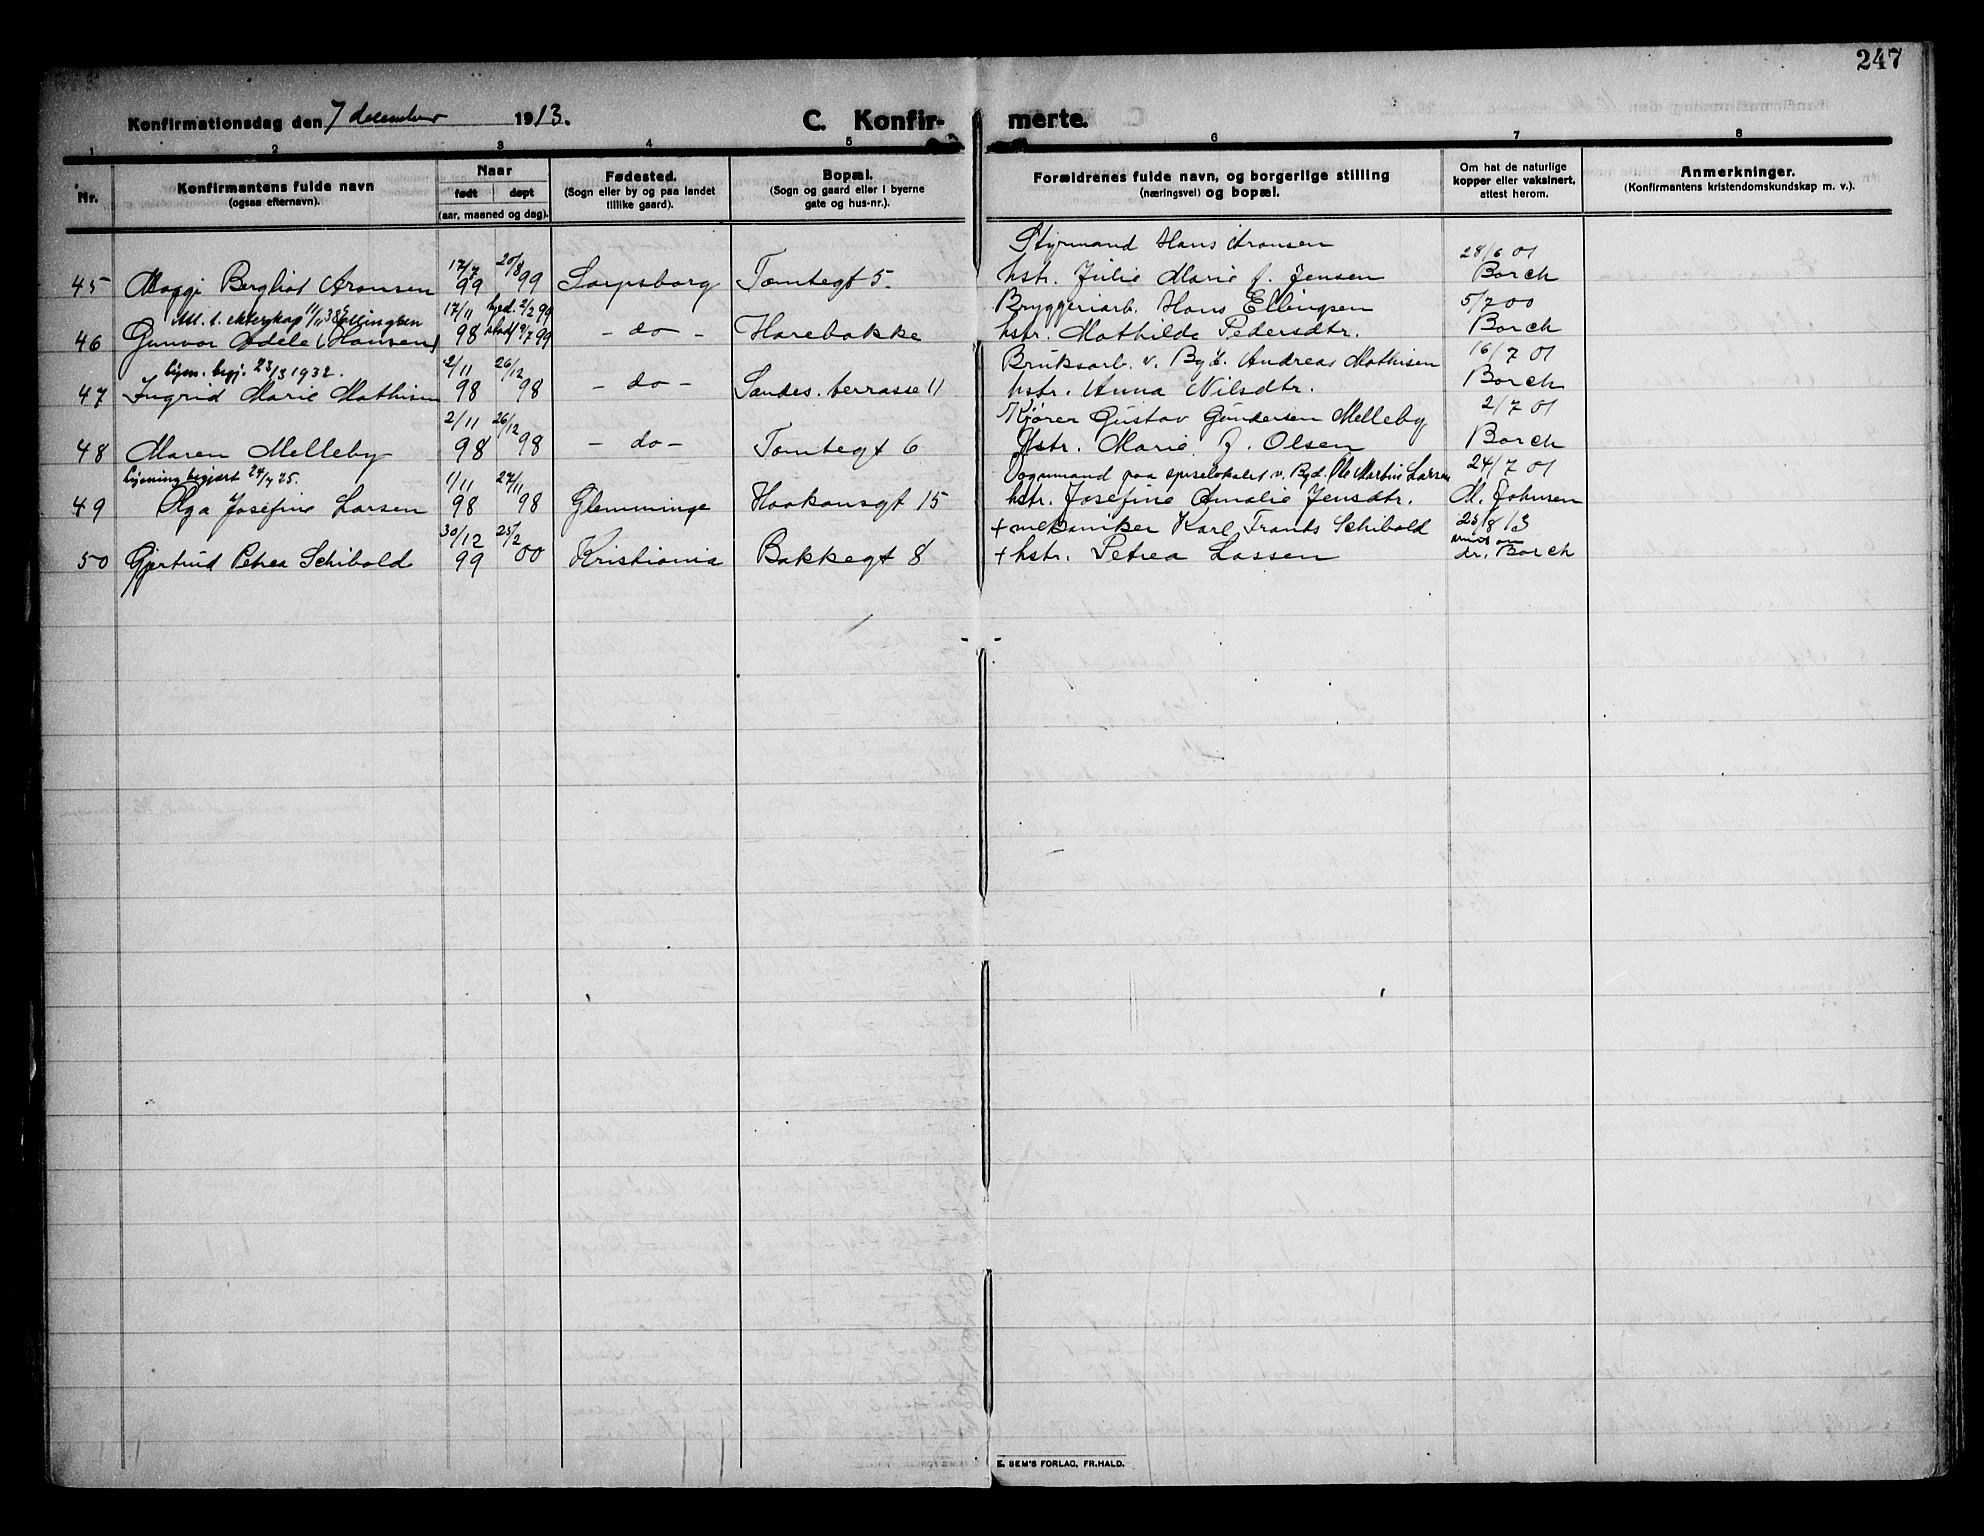 247
Konfirmationsdag den 7 december 1913. C. Konfir- merte.
1 2 3 4 5 6 7 8
Nr. Konfirmantens fulde navn (ogsaa efternavn). Naar født døpt (aar, maaned og dag). Fødested. (Sogn eller by og paa landet tillike gaard). Bopæl. (Sogn og gaard eller i byerne gate og hus-nr.). Forældrenes fulde navn, og borgerlige stilling (næringsvei) og bopæl. Om hat de naturlige kopper eller vaksinert, attest herom. Anmerkninger. (Konfirmantens kristendomskundskap m. v.).
17/7 20/8 Styrmand Hans Aronsen 28/6 01
45 Maggi Bergliot Aronsen 99 99 Sarpsborg Tomtegt 5. hstr. Julie Marie f. Jensen Borch
Att. t. ekteskap 11/11 38 Ellingsen 17/11 hjed. 2/2 99 Bryggeriarb. Hans Ellingsen 5/7 00
46 Gunvor Adele (Hansen) 98 stadf 9/7 99 - do - Harebakke hstr. Mathilde Pedersdtr. Borch
lysn. begj. 23/3 1932. 2/11 26/12 Bruksarb. v. Andreas Mathisen 16/7 01
47 Ingrid Marie Mathisen 98 98 - do - Sandes. terrasse 11 hstr. Anna Nilsdtr. Borch
2/11 26/12 Kjører Gustav Gundersen Melleby 2/7 01
48 Maren Melleby 98 98 - do - Tomtegt 6 Hstr. Marie f. Olsen Borch
lysning begjært 24/4 25. 1/11 27/11 Vognmand paa spiselokalet v. Byd. Ole Martin Larsen 24/7 01
49 Olga Josefine Larsen 98 98 Glemminge Haakonsgt 15 hstr. Josefine Amalie Jensdtr. M. Johnsen
30/12 25/2 + mekaniker Karl Frants Schibold 23/8 13
50 Gjertrud Petrea Schibold 99 00 Kristiania Bakkegt 8 + hstr. Petrea Lassen dr. Borch
E. SEM'S FORLAG, FR.HALD.